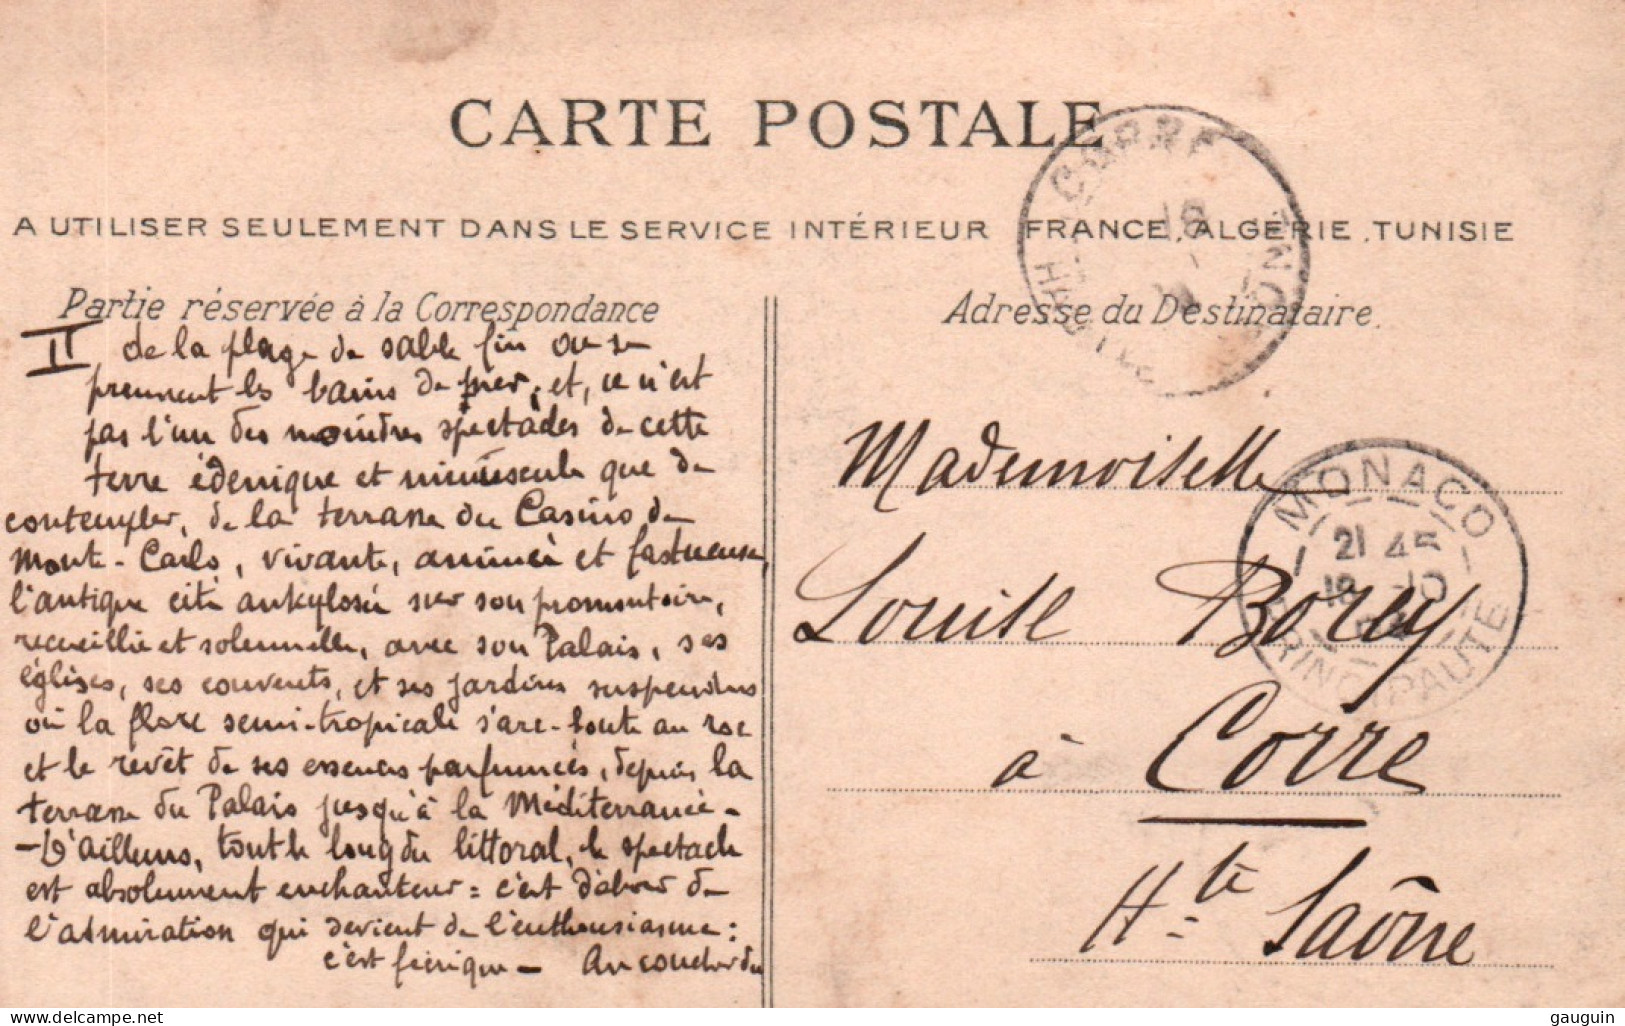 CARTE POSTALE
A UTILISER SEULEMENT DANS LE SERVICE INTÉRIEUR FRANCE, ALGÉRIE, TUNISIE
Partie réservée à la Correspondance
II de la plage de sable fin où se
prennent les bains de mer, et, ce n'est
pas l'un des moindres spectacles de cette
terre édenique et minuscule que de
contempler, de la terrasse du Casino de
Monte-Carlo, vivante, animée et fastueuse,
l'antique cité ankylosée sur son promontoire,
recueillie et solennelle, avec son Palais, ses
églises, ses couvents, et ses jardins suspendus
où la flore semi-tropicale s'arc-boute au roc
et le revêt de ses essences parfumées, depuis la
terrasse du Palais jusqu'à la Méditerranée-
-D'ailleurs, tout le long du littoral, le spectacle
est absolument enchanteur = c'est d'abord de
l'admiration qui devient de l'enthousiasme :
c'est féerique - Au coucher du
Adresse du Destinataire.
Mademoiselle
Louise Borey
à Corre
Hte Saône
CORRE
18
HAUTE SAONE
MONACO
21 45
18 -10
PRINCIPAUTÉ
gauguin
https://www.delcampe.net